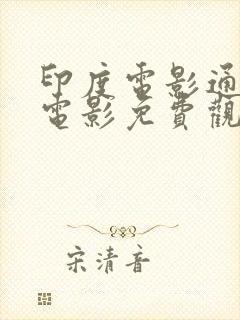 印度電影通
電影免費觀
宋清音